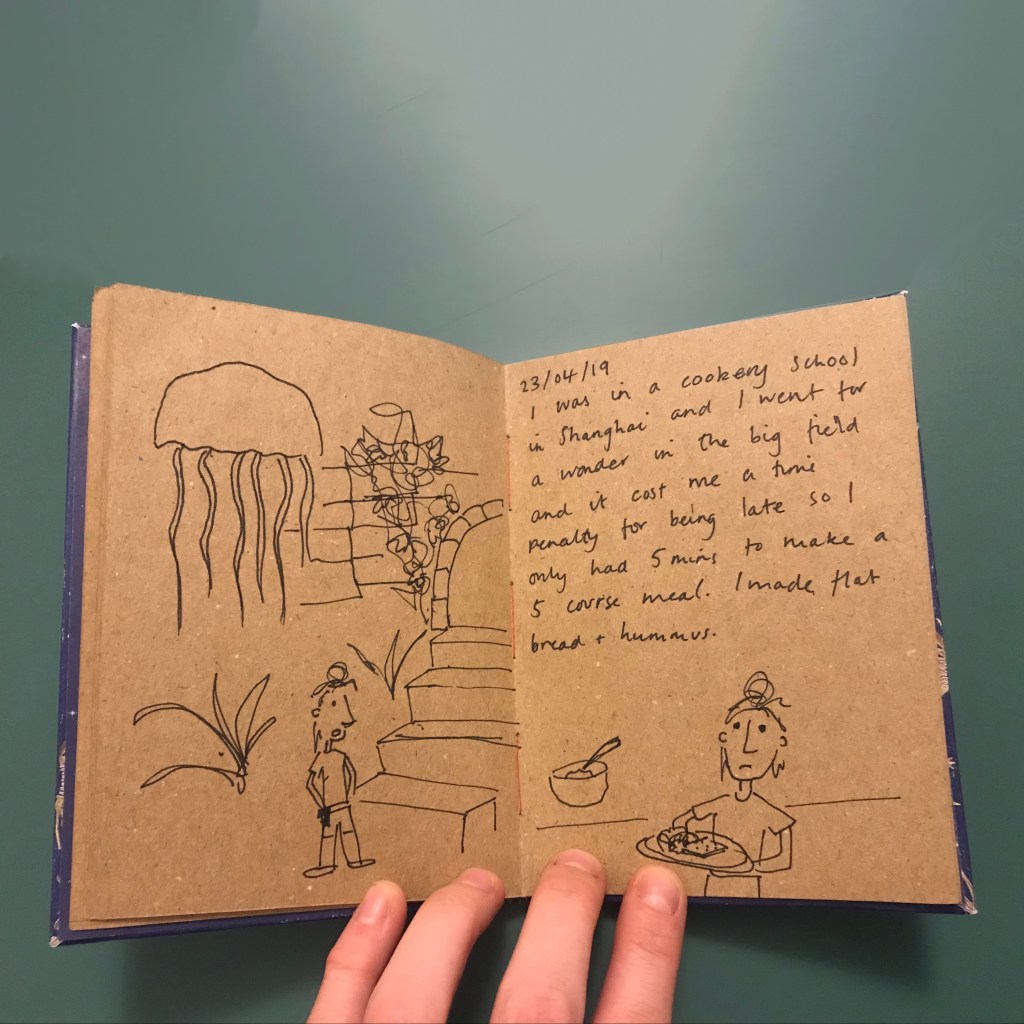 23/04/19
I was in a cookery school
in Shanghai and I went for
a wonder in the big field
and it cost me a time
penalty for being late so I
only had 5 mins to make a
5 course meal. I made flat
bread + hummus.